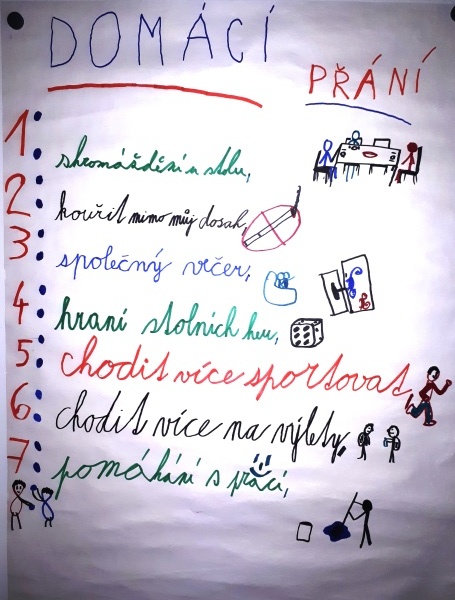 DOMÁCÍ
PŘÁNÍ
1: shromáždění u stolu,
2: kouřit mimo můj dosah,
3: společný večer,
4: hraní stolních her,
5: chodit více sportovat,
6: chodit více na výlety,
7: pomáhání s prací,